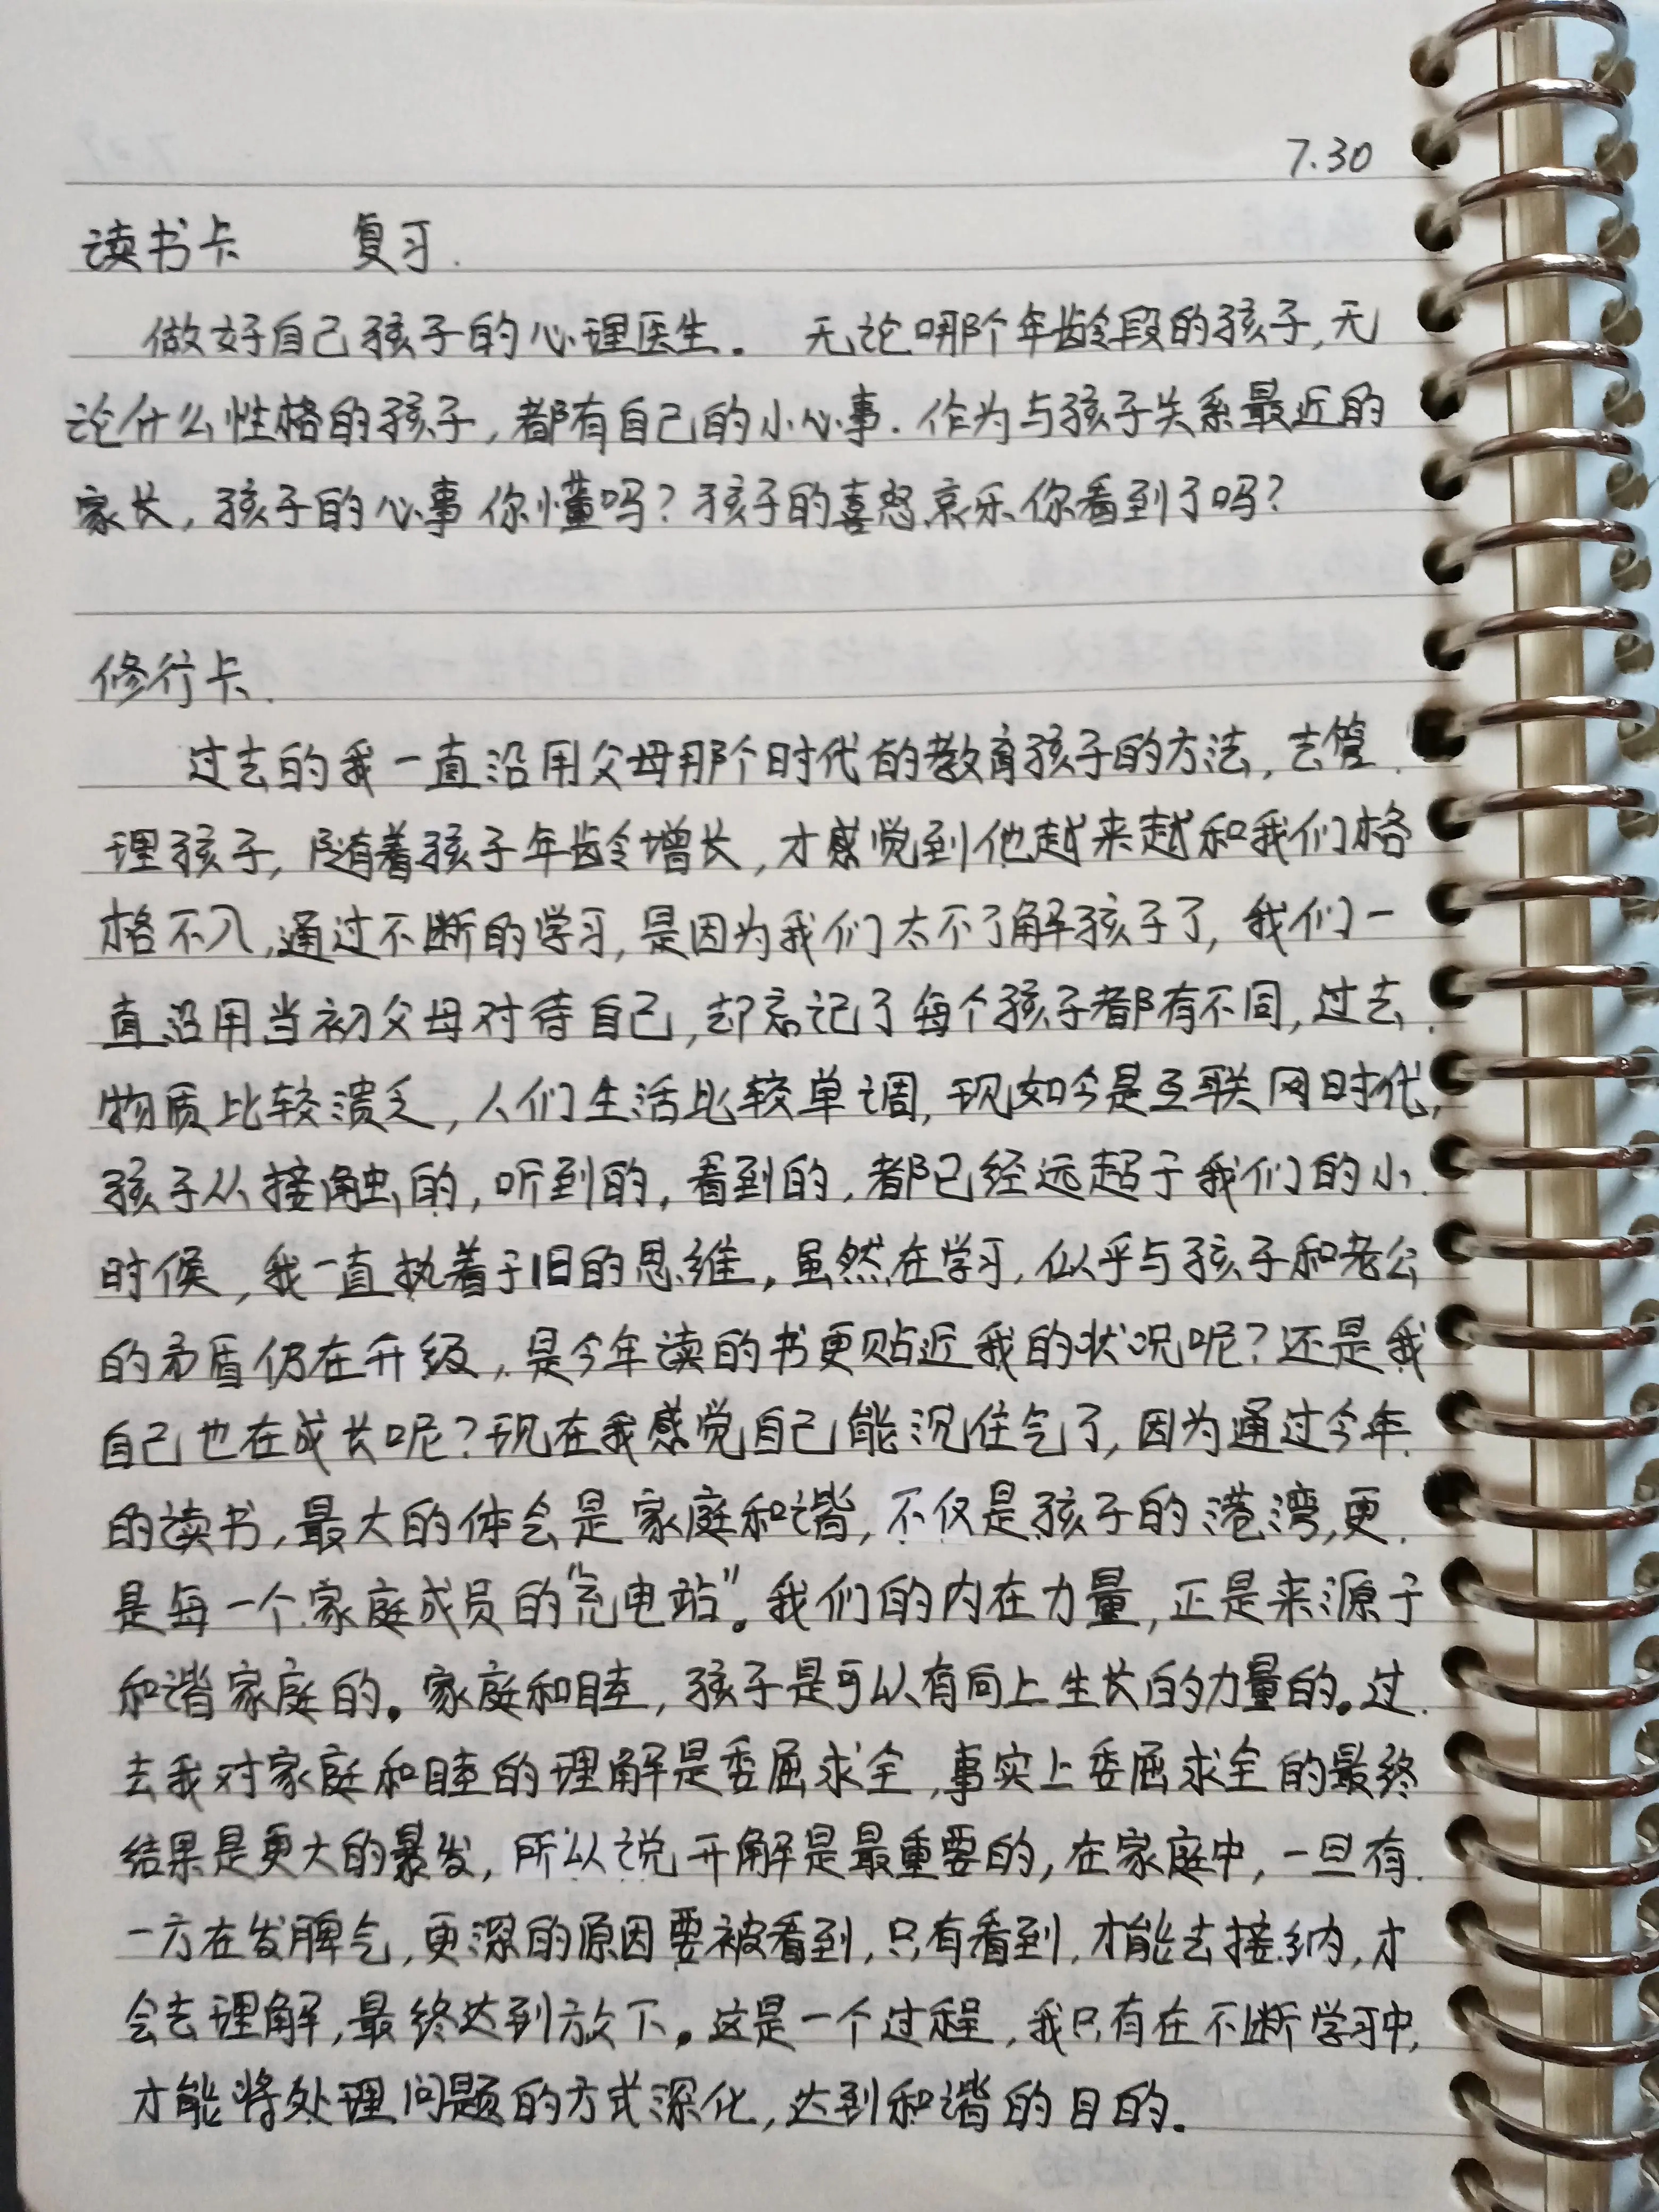 7.30
读书卡 复习.
做好自己孩子的心理医生。 无论哪个年龄段的孩子,无
论什么性格的孩子,都有自己的小心事.作为与孩子关系最近的
家长,孩子的心事你懂吗?孩子的喜怒哀乐你看到了吗?
修行卡.
过去的我一直沿用父母那个时代的教育孩子的方法,去管
理孩子,随着孩子年龄增长,才感觉到他越来越和我们格
格不入,通过不断的学习,是因为我们太不了解孩子了,我们一
直沿用当初父母对待自己,却忘记了每个孩子都有不同,过去
物质比较溃乏,人们生活比较单调,现如今是互联网时代,
孩子从接触的,听到的,看到的,都已经远超于我们的小
时候,我一直执着于旧的思维,虽然在学习,似乎与孩子和老公
的矛盾仍在升级,是今年读的书更贴近我的状况呢?还是我
自己也在成长呢?现在我感觉自己能沉住气了,因为通过今年
的读书,最大的体会是家庭和谐,不仅是孩子的港湾,更
是每一个家庭成员的“充电站”。我们的内在力量,正是来源于
和谐家庭的。家庭和睦,孩子是可以有向上生长的力量的。过
去我对家庭和睦的理解是委屈求全,事实上委屈求全的最终
结果是更大的暴发,所以说开解是最重要的,在家庭中,一旦有
一方在发脾气,更深的原因要被看到,只有看到,才能去接纳,才
会去理解,最终达到放下。这是一个过程,我只有在不断学习中,
才能将处理问题的方式深化,达到和谐的目的。